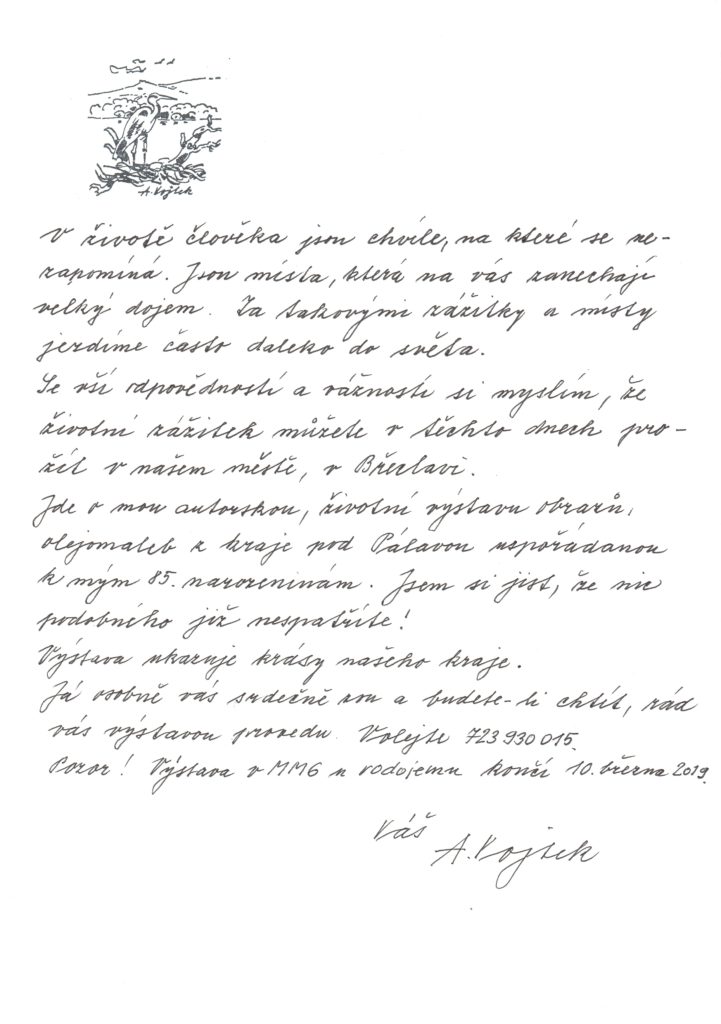 A. Vojtek
V životě člověka jsou chvíle, na které se ne-
zapomíná. Jsou místa, která na vás zanechají
velký dojem. Za takovými zážitky a místy
jezdíme často daleko do světa.
Se vší odpovědností a vážností si myslím, že
životní zážitek můžete v těchto dnech pro-
žít v našem městě, v Břeclavi.
Jde o mou autorskou, životní výstavu obrazů,
olejomaleb z kraje pod Pálavou uspořádanou
k mým 85. narozeninám. Jsem si jist, že nic
podobného již nespatříte!
Výstava ukazuje krásy našeho kraje.
Já osobně vás srdečně zvu a budete-li chtít, rád
vás výstavou provedu. Volejte 723 930 015.
Pozor! Výstava v MMG u vodojemu končí 10. března 2019.
Váš
A. Vojtek